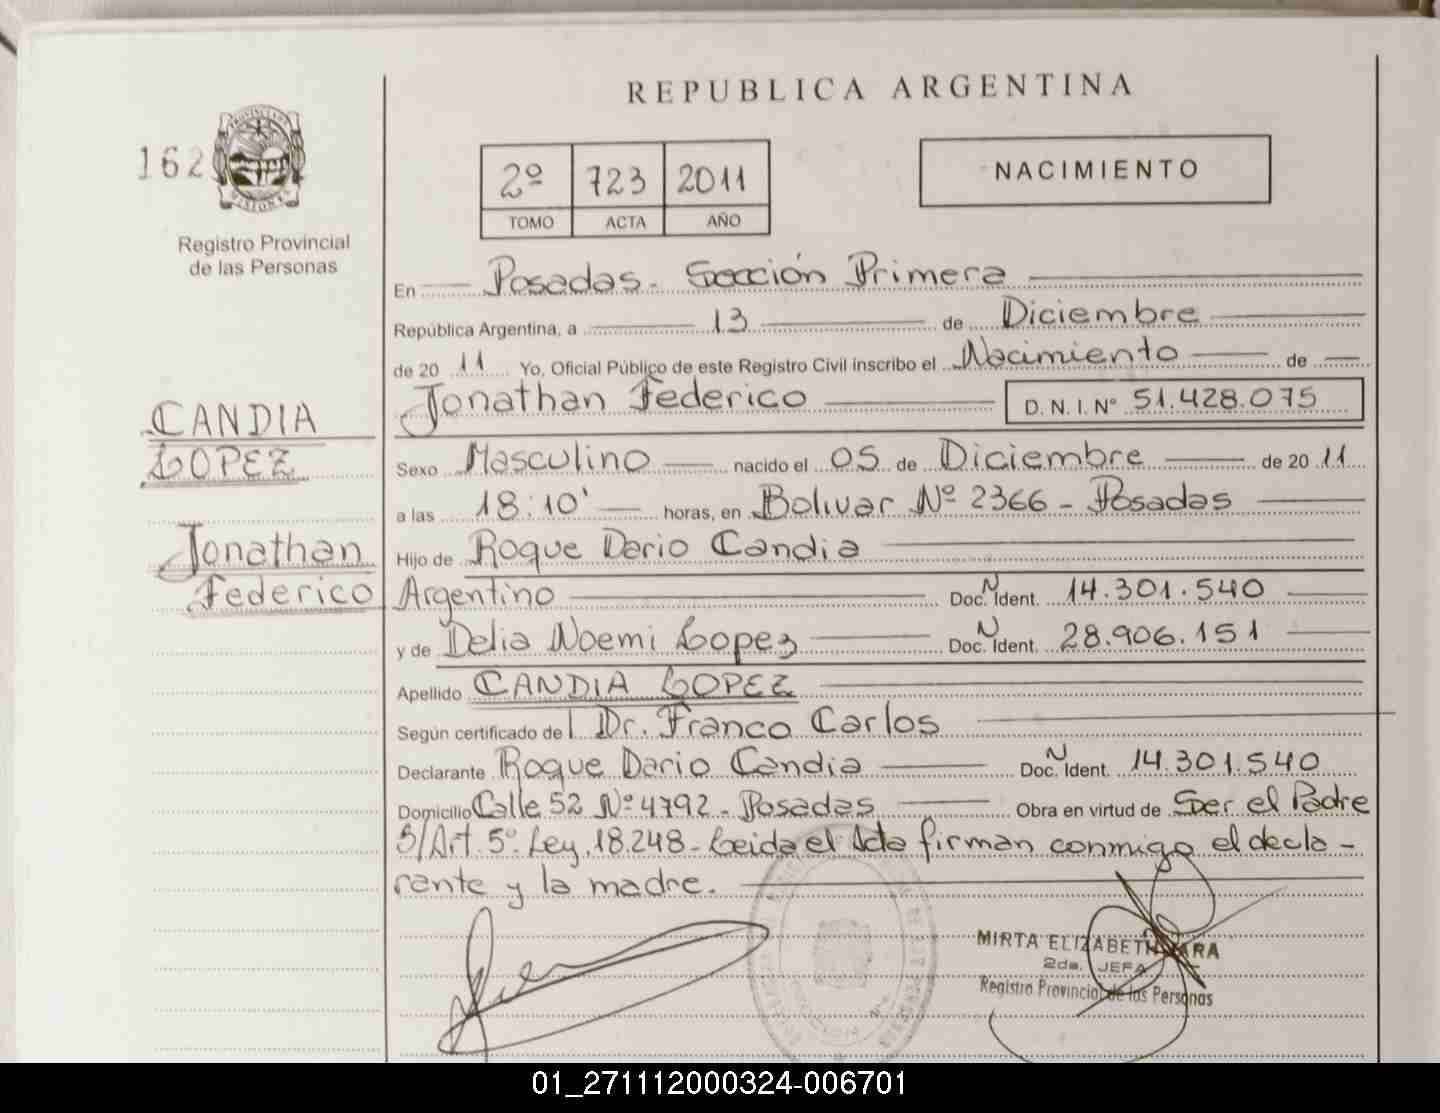 REPUBLICA ARGENTINA
162
2º 723 2011
TOMO ACTA AÑO
NACIMIENTO
Registro Provincial
de las Personas
En Posadas - Sección Primera
República Argentina, a 13 de Diciembre
de 20 11 Yo, Oficial Público de este Registro Civil inscribo el Nacimiento de
Jonathan Federico D. N. I. Nº 51.428.075
CANDIA
LOPEZ
Jonathan
Federico
Sexo Masculino nacido el 05 de Diciembre de 20 11
a las 18:10' horas, en Bolivar Nº 2366 - Posadas
Hijo de Roque Dario Candia
Argentino Doc. N Ident. 14.301.540
y de Delia Noemi Lopez Doc. N Ident. 28.906.151
Apellido CANDIA LOPEZ
Según certificado de l Dr. Franco Carlos
Declarante Roque Dario Candia Doc. N Ident. 14.301.540
Domicilio Calle 52 Nº 4792 - Posadas Obra en virtud de Ser el Padre
S/Art. 5º Ley. 18.248 - Leida el Acta firman conmigo el decla-
rante y la madre.
MIRTA ELIZABETH
2da. JEFA
Registro Provincial de las Personas
01_271112000324-006701